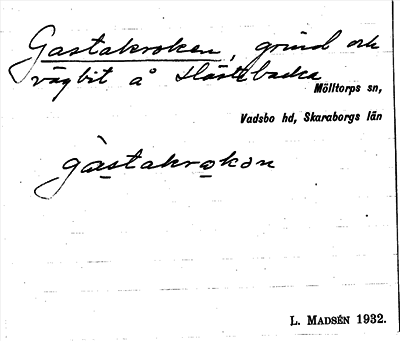 Gastakroken, grind och
vägbit å Hästebacka
Mölltorps sn,
Vadsbo hd, Skaraborgs län
gastakrokən
L. MADSÉN 1932.